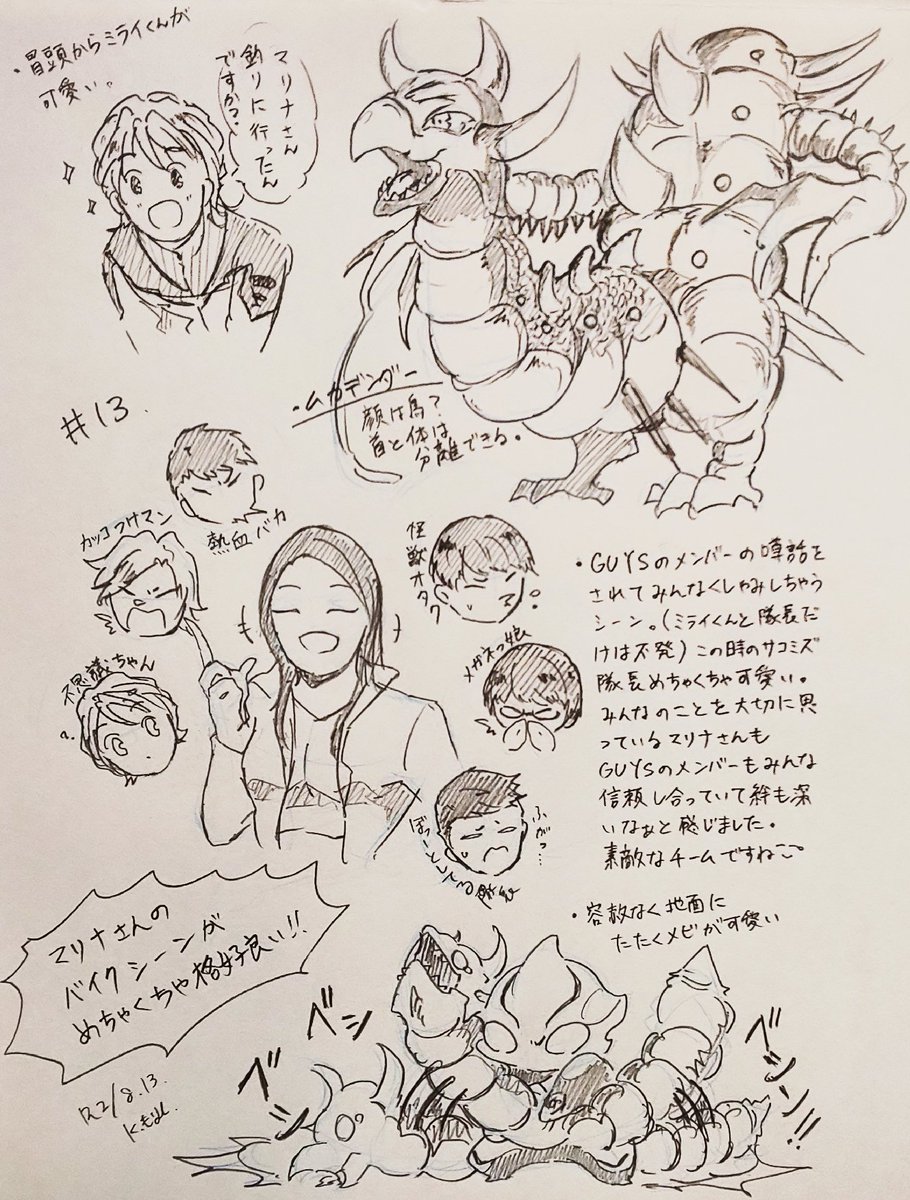 ・冒頭からミライくんが
可愛い。
マリナさん
釣りに行ったん
ですか?
・ムカデンダー
顔は鳥?
首と体は
分離できる。
#13.
熱血バカ
カッコつけマン
怪獣オタク
不思議ちゃん
メガネっ娘
ぼーっとしてる隊長
ふがっ…
・GUYSのメンバーの噂話を
されてみんなくしゃみしちゃう
シーン。(ミライくんと隊長だ
けは不発)この時のサコミズ
隊長めちゃくちゃ可愛い。
みんなのことを大切に思
っているマリナさんも
GUYSのメンバーもみんな
信頼し合っていて絆も深
いなぁと感じました。
素敵なチームですねこ。
マリナさんの
バイクシーンが
めちゃくちゃ格好良い!!
・容赦なく地面に
たたくメビが可愛い
ベシ
ベシ
ベシン!!
R2/8.13.